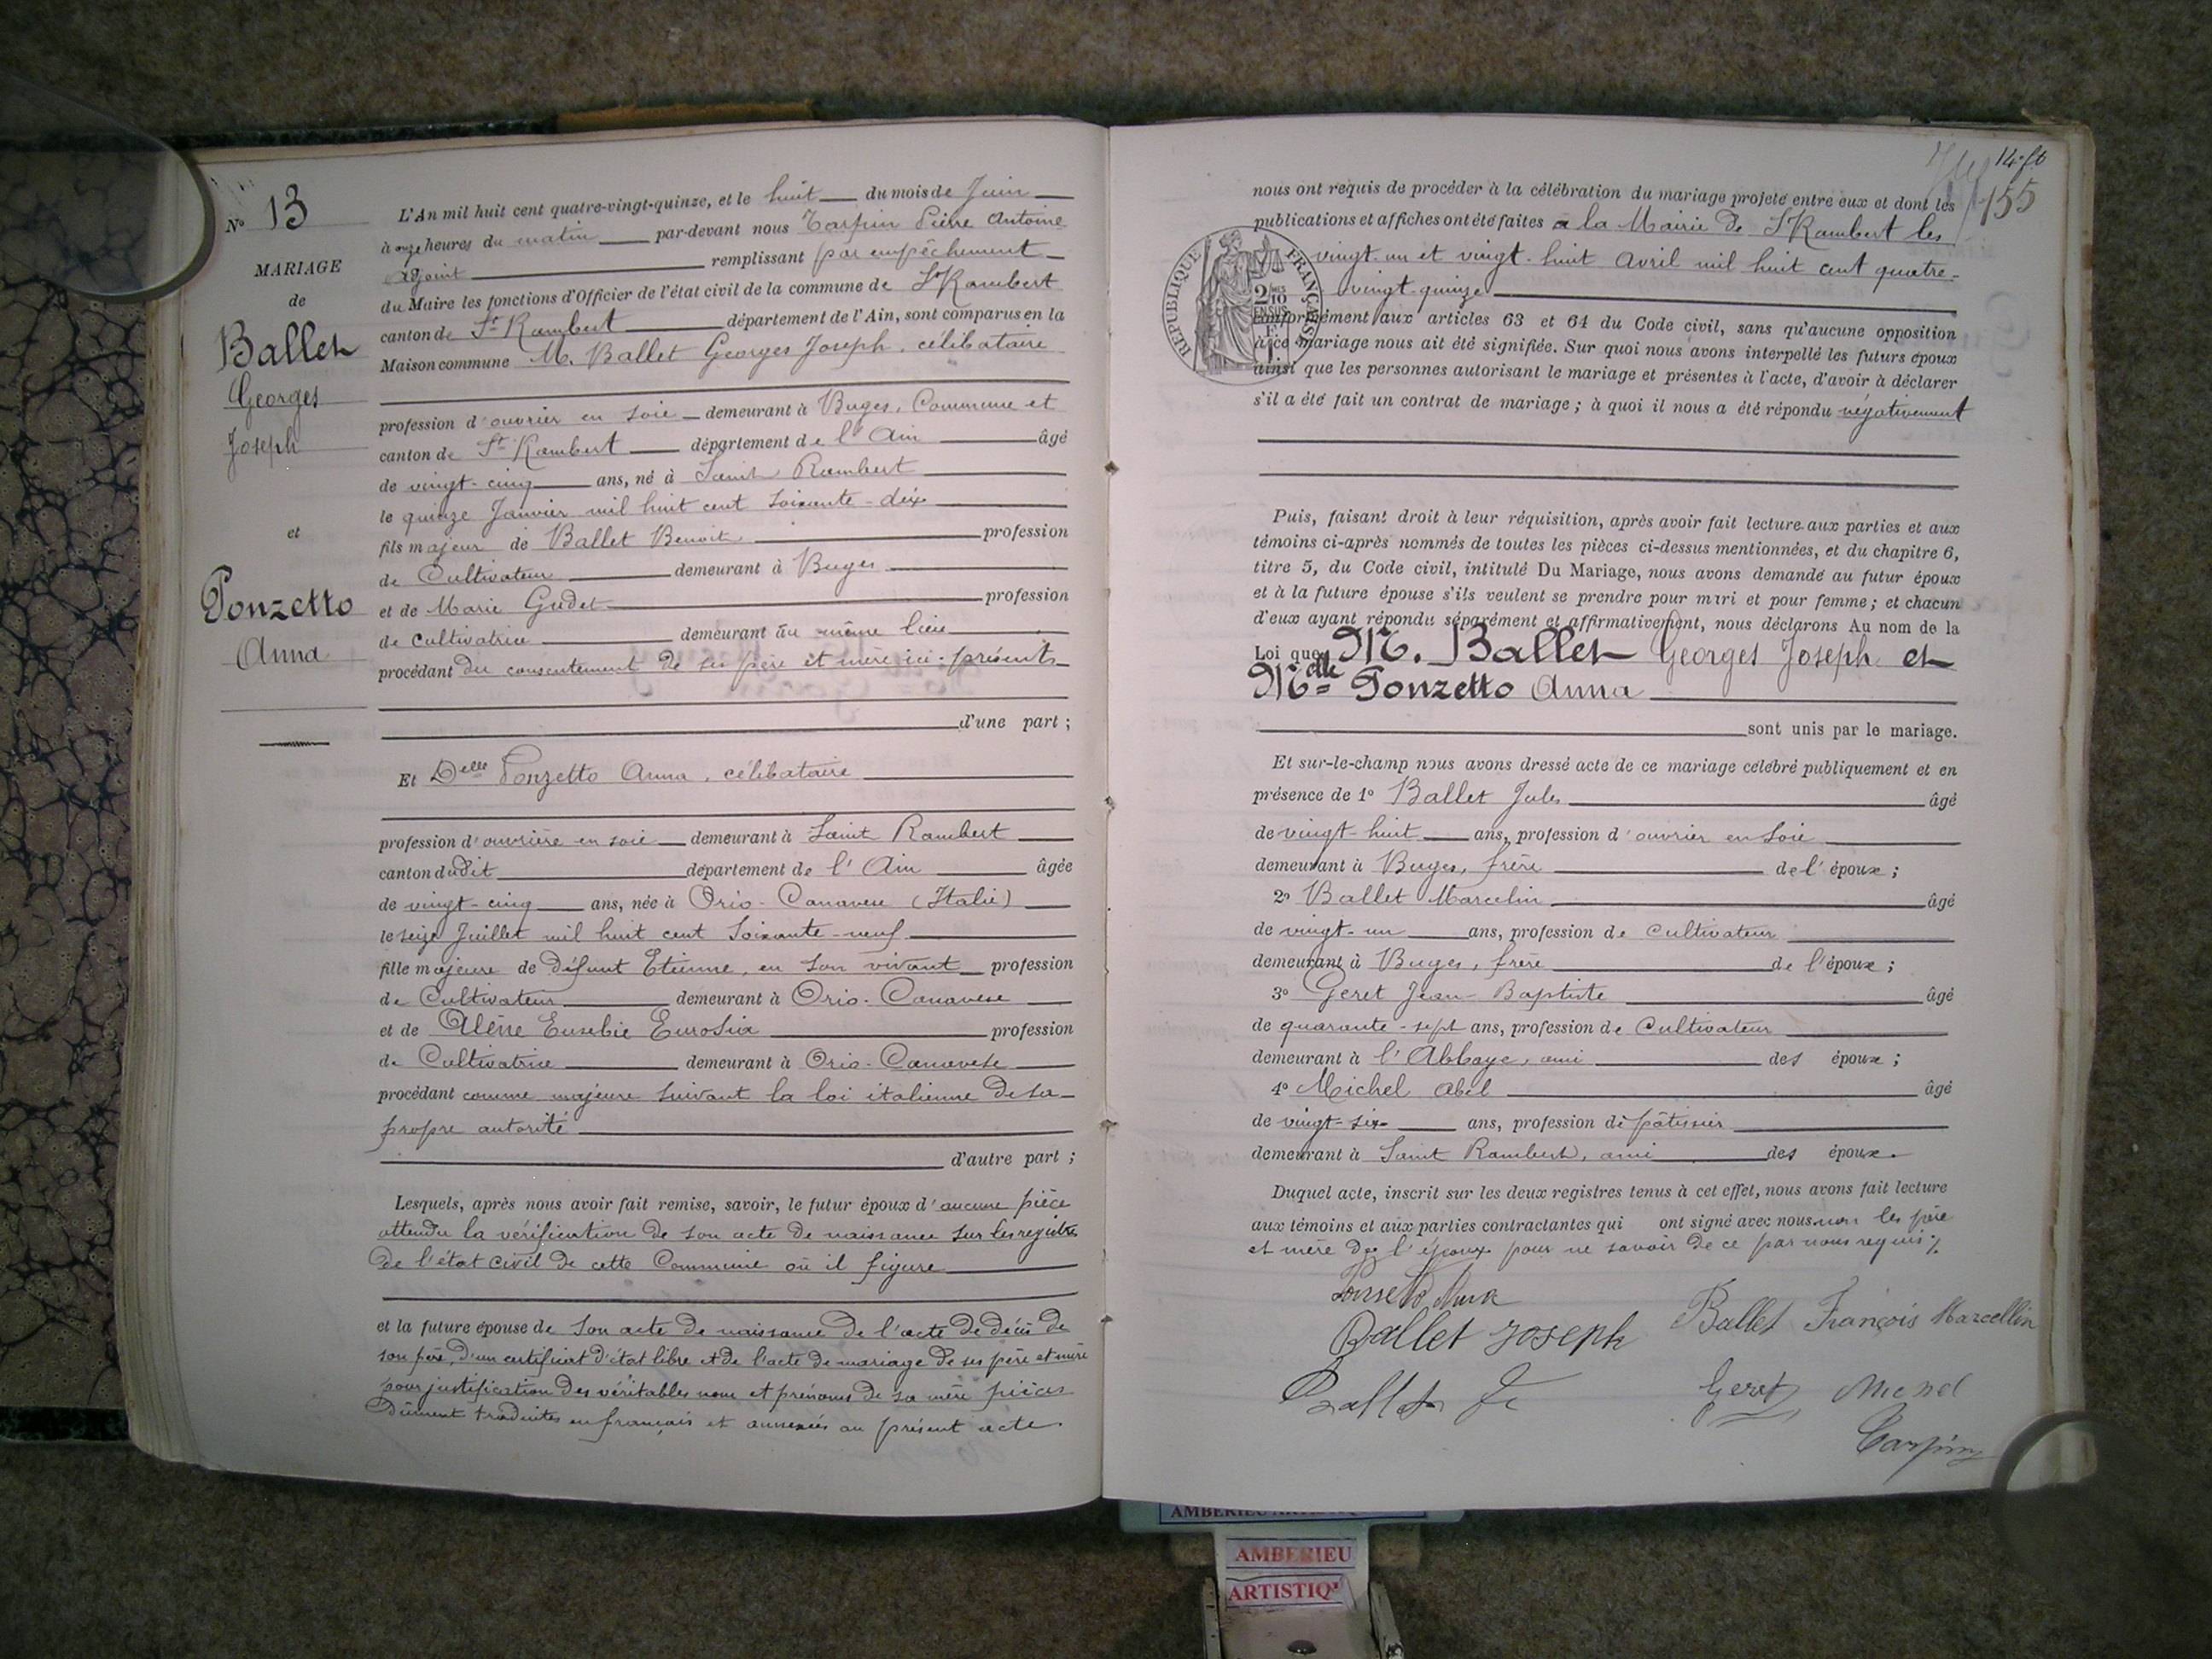 Nº 13
MARIAGE
de
Ballet
Georges
Joseph
et
Ponzetto
Anna
L'An mil huit cent quatre-vingt-quinze, et le huit du mois de Juin
à onze heures du matin par-devant nous Tarpin Pierre Antoine
adjoint remplissant par empêchement
du Maire les fonctions d'Officier de l'état civil de la commune de St Rambert
canton de St Rambert département de l'Ain, sont comparus en la
Maison commune M. Ballet Georges Joseph, célibataire
profession d'ouvrier en soie demeurant à Buges, Commune et
canton de St Rambert département de l'Ain âgé
de vingt-cinq ans, né à Saint Rambert
le quinze Janvier mil huit cent soixante-dix
fils majeur de Ballet Benoit profession
de Cultivateur demeurant à Buges
et de Marie Gudet profession
de cultivatrice demeurant au même lieu
procédant du consentement de ses père et mère ici-présents
d'une part ;
Et Delle Ponzetto Anna, célibataire
profession d'ouvrière en soie demeurant à Saint Rambert
canton dudit département de l'Ain âgée
de vingt-cinq ans, née à Orio-Canavese (Italie)
le seize Juillet mil huit cent soixante-neuf
fille majeure de défunt Etienne, en son vivant profession
de Cultivateur demeurant à Orio-Canavese
et de Eusebie Eurosia profession
de Cultivatrice demeurant à Orio-Canavese
procédant comme majeure suivant la loi italienne de sa
propre autorité
d'autre part ;
Lesquels, après nous avoir fait remise, savoir, le futur époux d'aucune pièce
attendu la vérification de son acte de naissance sur les registres
de l'état civil de cette Commune où il figure
et la future épouse de son acte de naissance de l'acte de décès de
son père, d'un certificat d'état libre et de l'acte de mariage de ses père et mère
pour justification des véritables nom et prénoms de sa mère pièces
dûment traduites en français et annexées au présent acte.
14 ft
155
nous ont requis de procéder à la célébration du mariage projeté entre eux et dont les
publications et affiches ont été faites à la Mairie de St Rambert les
vingt-un et vingt-huit Avril mil huit cent quatre-
vingt-quinze
RÉPUBLIQUE FRANÇAISE
2/10 EN SUS
conformément aux articles 63 et 64 du Code civil, sans qu'aucune opposition
à ce mariage nous ait été signifiée. Sur quoi nous avons interpellé les futurs époux
ainsi que les personnes autorisant le mariage et présentes à l'acte, d'avoir à déclarer
s'il a été fait un contrat de mariage ; à quoi il nous a été répondu négativement
Puis, faisant droit à leur réquisition, après avoir fait lecture aux parties et aux
témoins ci-après nommés de toutes les pièces ci-dessus mentionnées, et du chapitre 6,
titre 5, du Code civil, intitulé Du Mariage, nous avons demandé au futur époux
et à la future épouse s'ils veulent se prendre pour mari et pour femme ; et chacun
d'eux ayant répondu séparément et affirmativement, nous déclarons Au nom de la
Loi que M. Ballet Georges Joseph et
Mdlle Ponzetto Anna
sont unis par le mariage.
Et sur-le-champ nous avons dressé acte de ce mariage célébré publiquement et en
présence de 1º Ballet Jules âgé
de vingt-huit ans, profession d'ouvrier en soie
demeurant à Buges, frère de l'époux ;
2º Ballet Marcelin âgé
de vingt-un ans, profession de Cultivateur
demeurant à Buges, frère de l'époux ;
3º Geret Jean-Baptiste âgé
de quarante-sept ans, profession de Cultivateur
demeurant à l'Abbaye, ami des époux ;
4º Michel Abel âgé
de vingt-six ans, profession de pâtissier
demeurant à Saint Rambert, ami des époux.
Duquel acte, inscrit sur les deux registres tenus à cet effet, nous avons fait lecture
aux témoins et aux parties contractantes qui ont signé avec nous non les père
et mère de l'époux pour ne savoir de ce par nous requis
Ballet François Marcellin
Ballet Joseph
Ballet
Geret Michel
Tarpin
AMBERIEU
AMBERIEU
ARTISTIQ